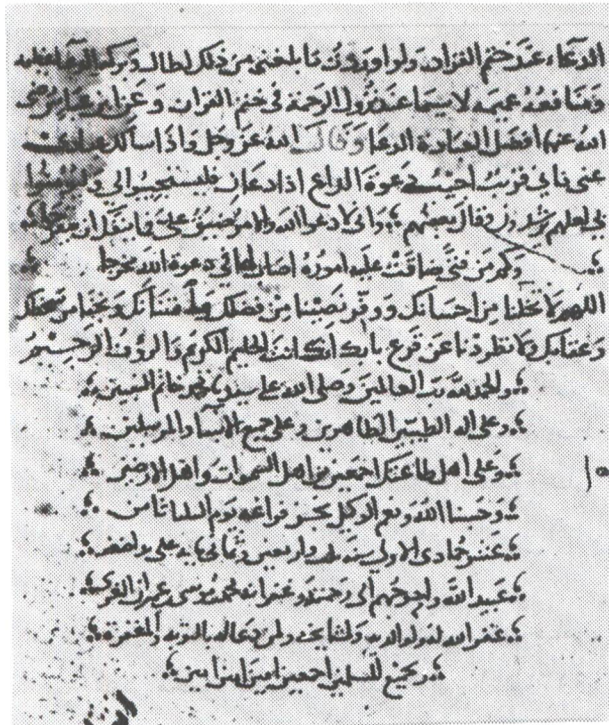 الدعاء عند ختم القران ولو اوردت ما بلغني من ذلك لطال وبركة الدعا عظيمه
ومنافعه عميمه لا سيما عند نزول الرحمة في ختم القران وعن ابن عباس رضى
الله عنهما افضل العبادة الدعا وقال الله عز وجل واذا سالك عبادى
عنى فانى قريب اجيب دعوة الداع اذا دعان فليستجيبوا لي وليومنوا
بي لعلهم يرشدون وقال بعضهم وانى لادعوا الله والامر ضيق على فما ينفك ان
وكم من فتى ضاقت عليه اموره اصاب لها في دعوة الله مخرجا
اللهم لا تخلنا من احسانك ووفر نصيبنا من فضلك وامتنانك ونجنا من سخطك
وعقابك ولا تطردنا عن قرع بابك انك انت الحليم الكريم والرؤف الرحيم
والحمد لله رب العالمين وصلى الله على سيدنا محمد خاتم النبيين
وعلى اله الطيبين الطاهرين وعلى جميع الانبيا والمرسلين
وعلى اهل طاعتك اجمعين من اهل السموات واهل الارضين
وحسبنا الله ونعم الوكيل نجز فراغه يوم الثلثا ثامن
عشر جمادى الاولى سنة واربعين وثماني مايه على يد افقر
عبيد الله واحوجهم الى رحمته وغفرانه محمد بن موسى بن عمران
غفر الله له ولوالديه ولمشايخه ولمن دعا له بالتوبة والمغفرة
ولجميع المسلمين اجمعين امين امين امين